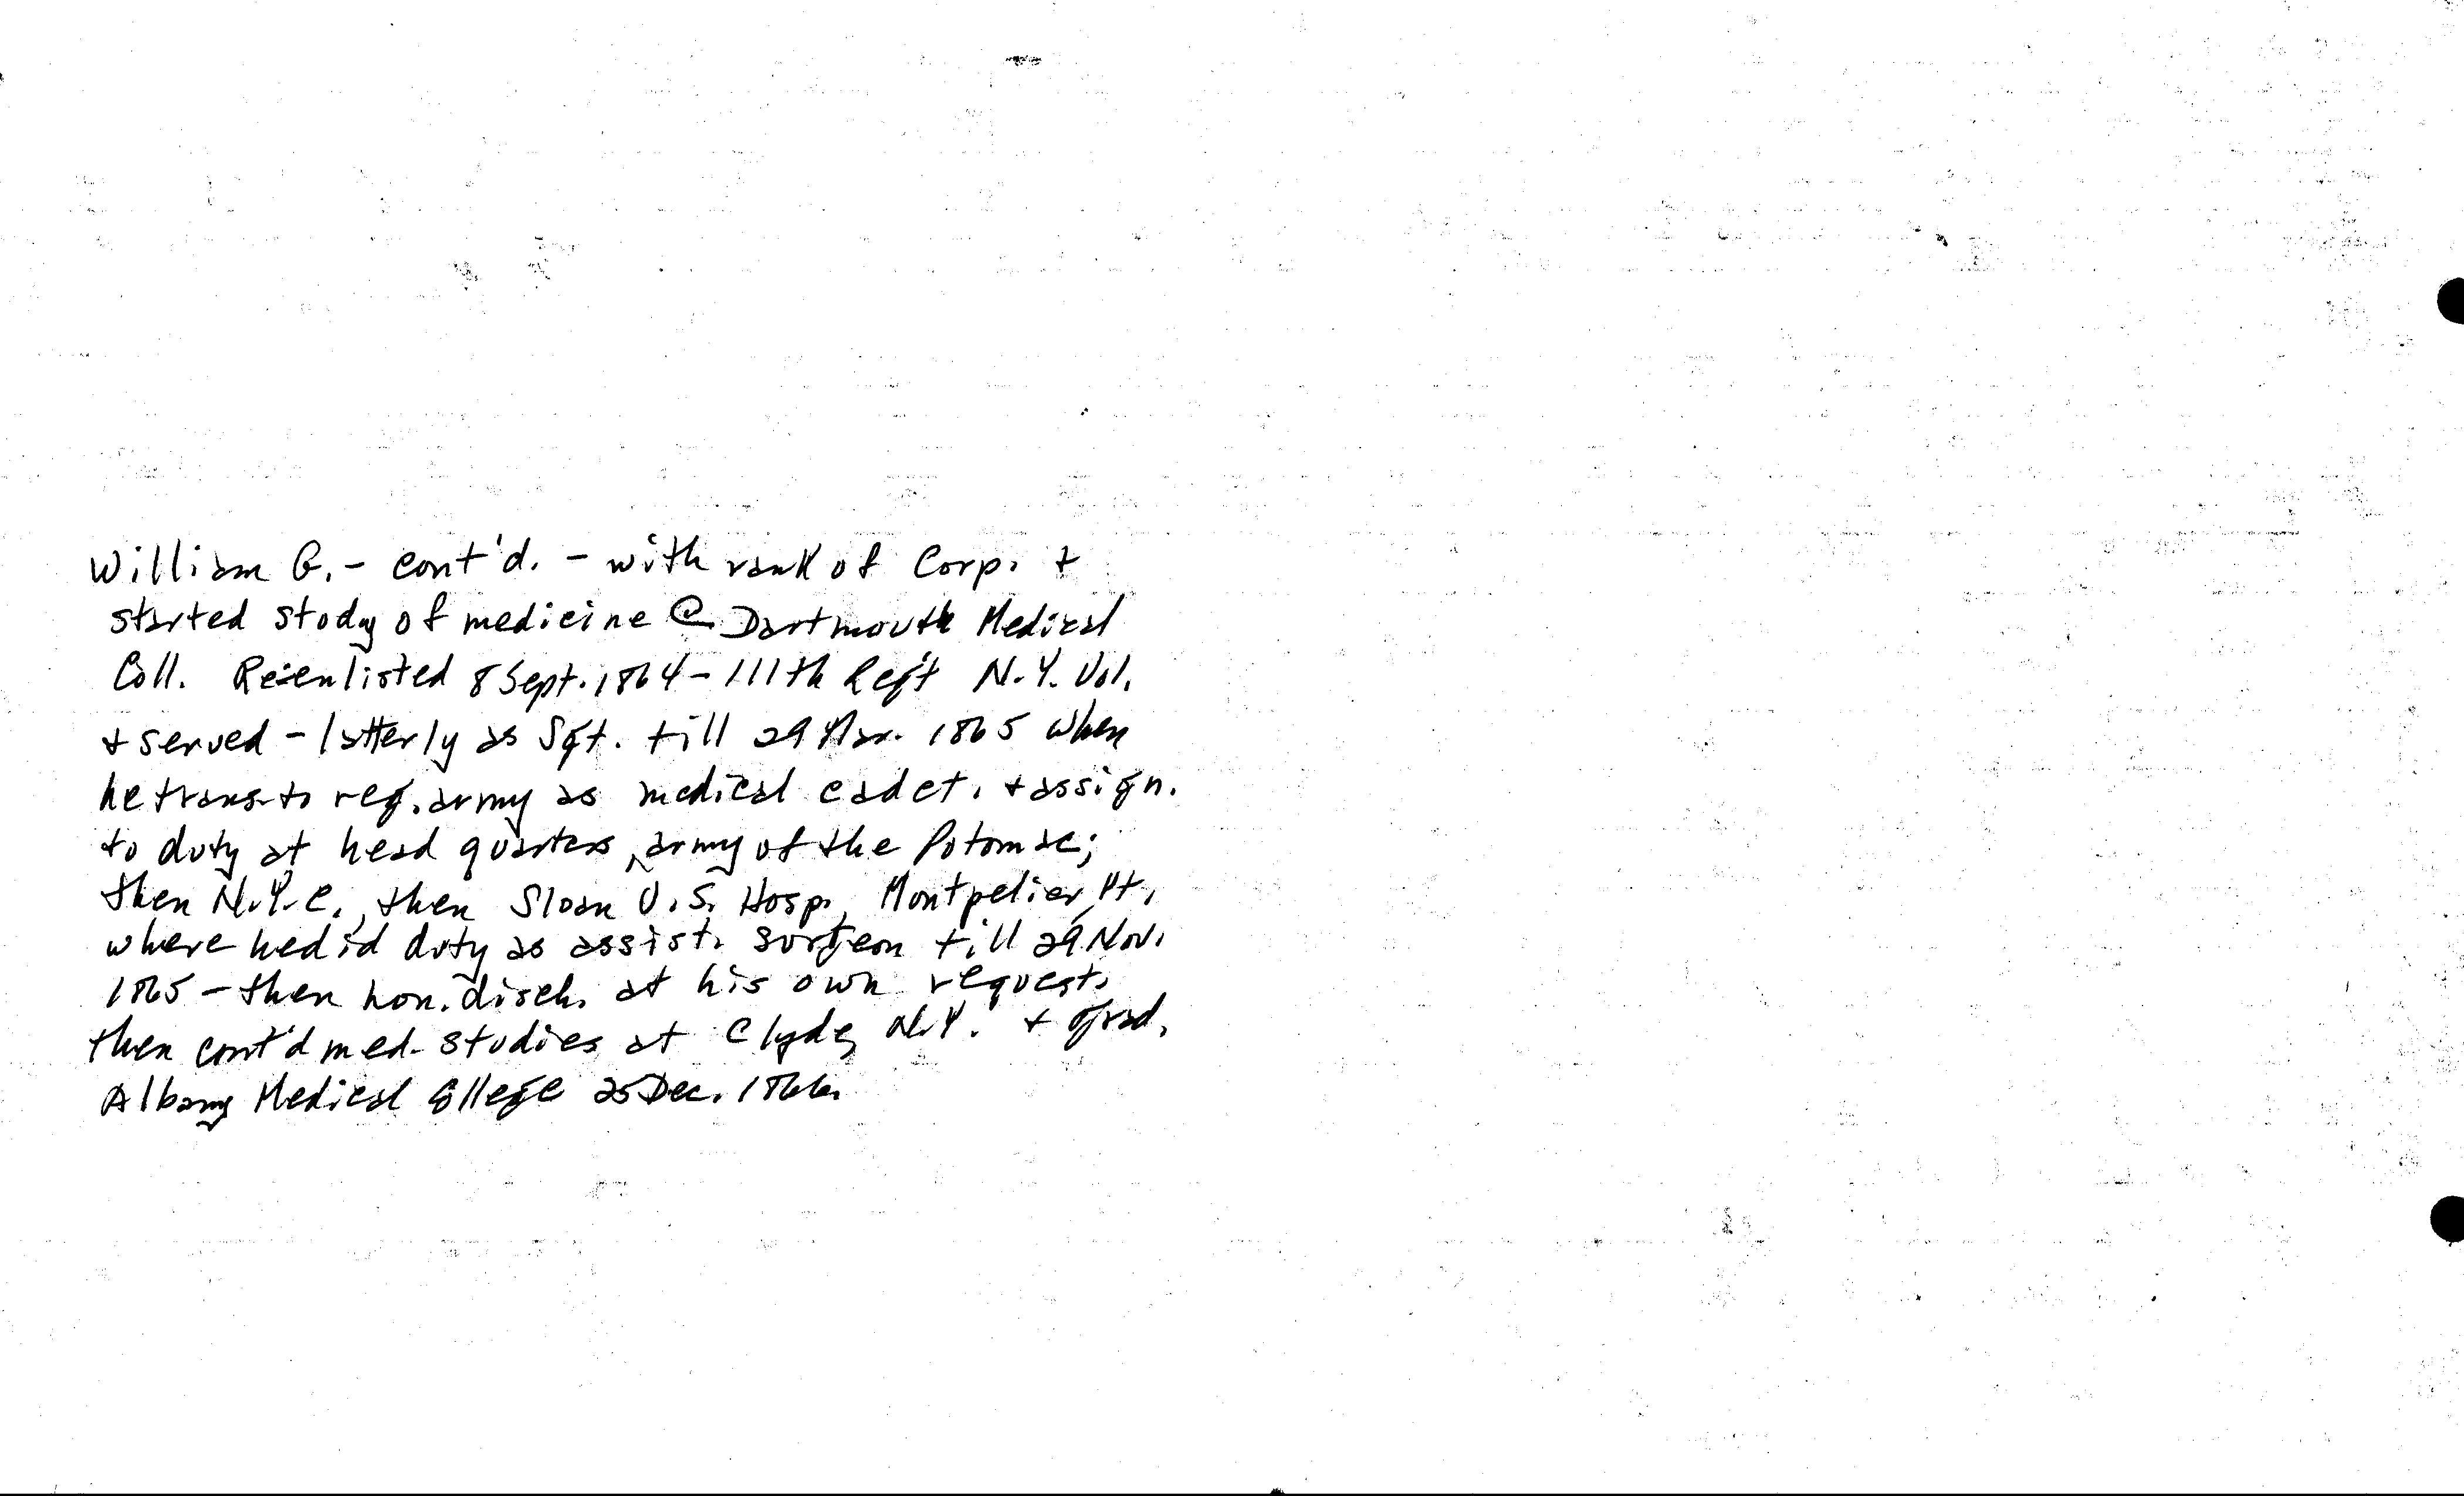 William G. - cont'd. - with rank of Corp. +
started study of medicine @ Dartmouth Medical
Coll. Re-enlisted 8 Sept. 1864 - 111th Reg't N.Y. Vol.
+ served - latterly as Sgt. till 29 Mar. 1865 when
he trans. to reg. army as medical cadet. + assign.
to duty at head quarters, army of the Potomac;
then N.Y.C., then Sloan U.S. Hosp., Montpelier, Vt.
where he did duty as assist. surgeon till 29 Nov.
1865 - then hon. disch. at his own request.
then cont'd med. studies at Clyde, N.Y. + grad.
Albany Medical College 25 Dec. 1866.